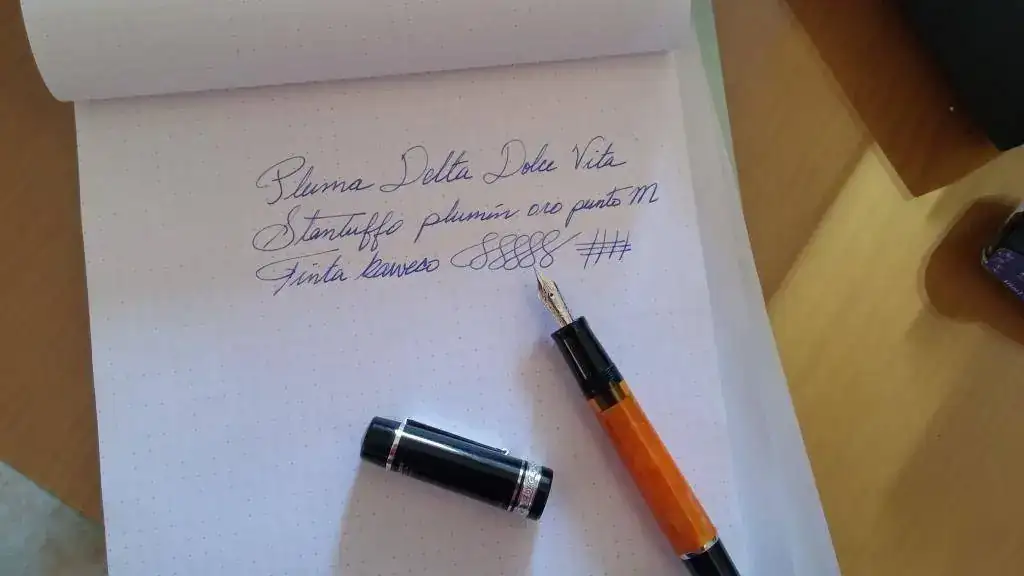 Pluma Delta Dolce Vita
Stantuffo plumín oro punto M
Tinta kaweco